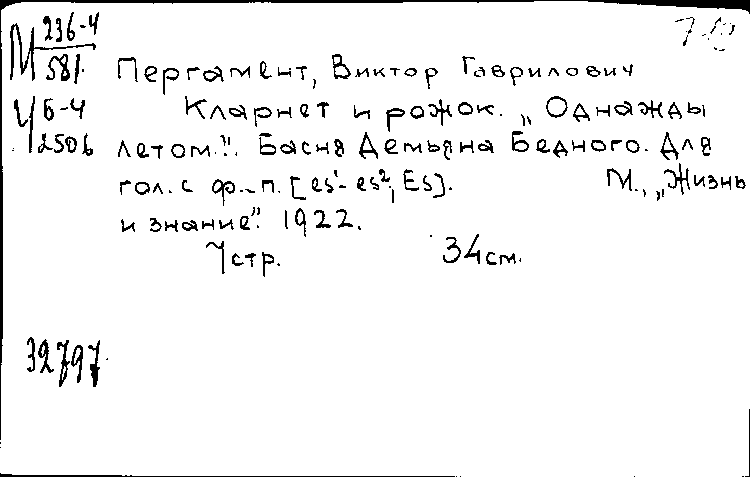 М 236-4
581
Ч Б-4
2506
Пергамент, Виктор Гаврилович
Кларнет и рожок. „Однажды
летом.". Басня Демьяна Бедного. Для
гол. с ф.-п. [es¹-es², Es]. М., „Жизнь
и знание". 1922.
7 стр. 34 см.
32797